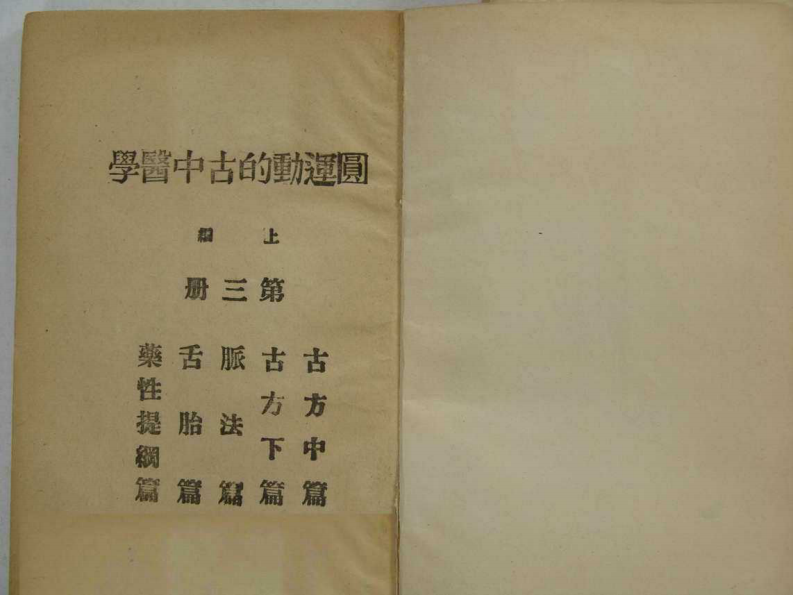 圓運動的古中醫學
上編
第三册
古方中篇
古方下篇
脈法篇
舌胎篇
藥性提綱篇